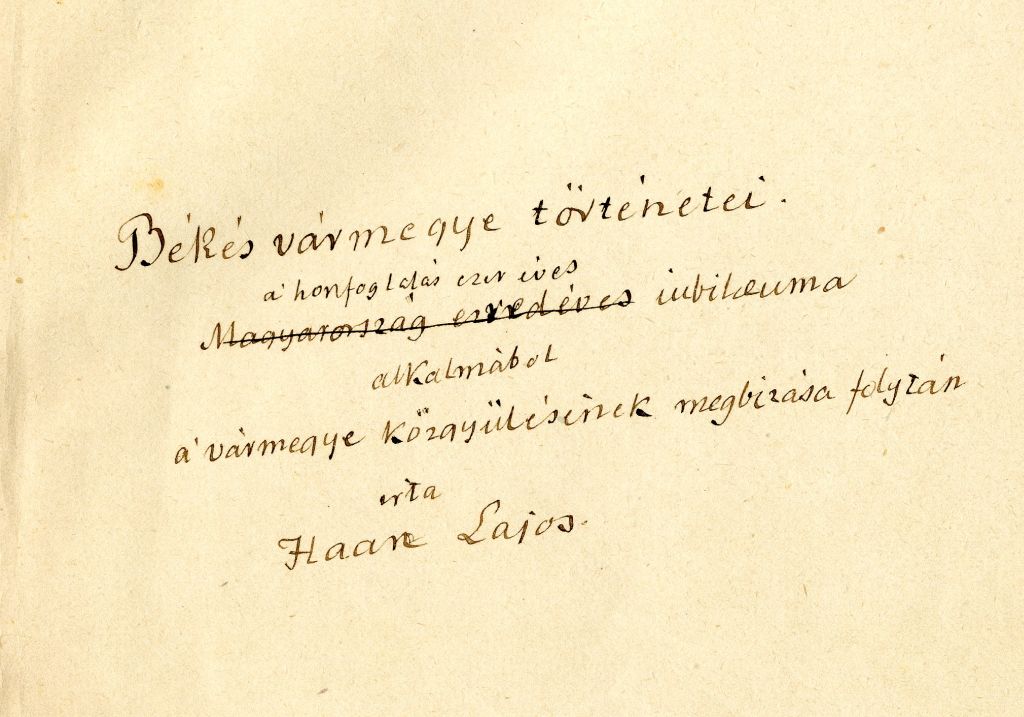 Békés vármegye történetei.
a' honfoglalás ezer éves
Magyarország ezredéves iubilæuma
alkalmábol
a' vármegye közgyülésének megbizása folytán
irta
Haan Lajos.